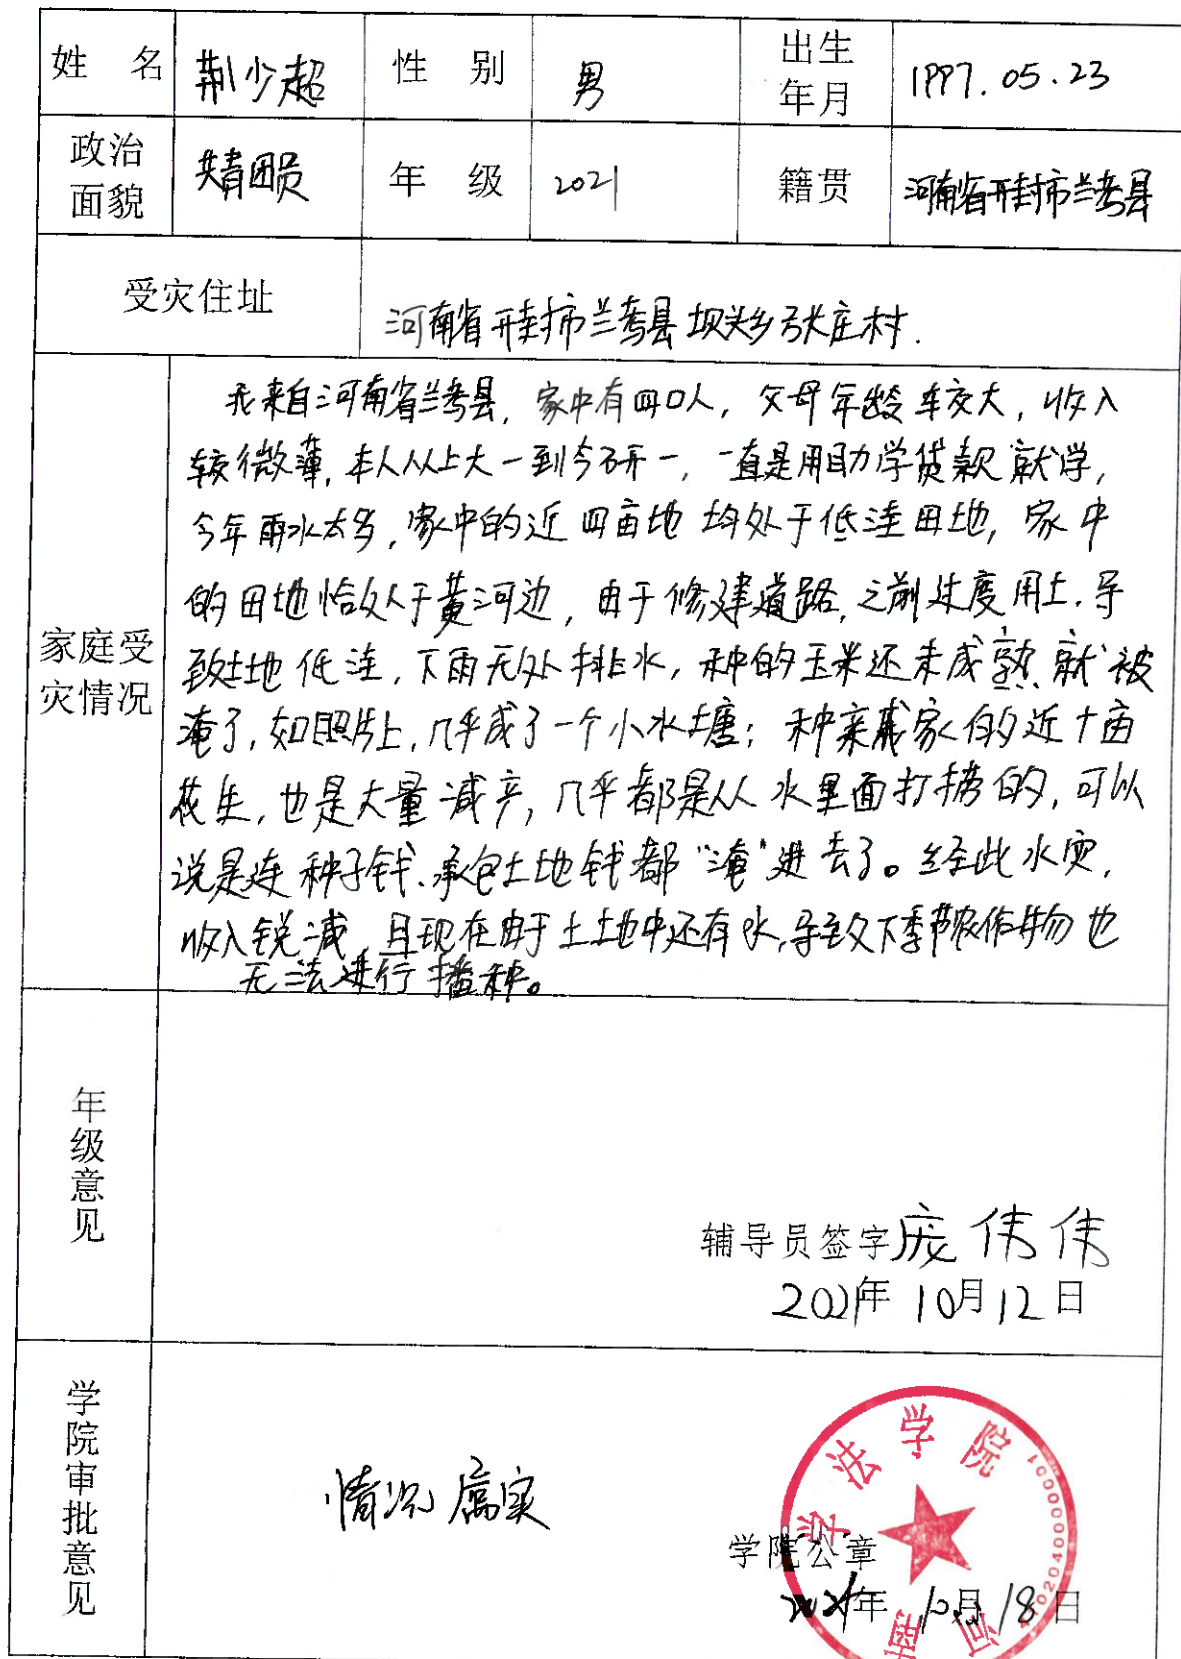 姓 名 荆少超 性 别 男 出生年月 1997.05.23
政治面貌 共青团员 年 级 2021 籍贯 河南省开封市兰考县
受灾住址 河南省开封市兰考县坝头乡张庄村.
家庭受灾情况
我来自河南省兰考县，家中有四口人，父母年龄较大，收入
较微薄，本人从上大一到今研一，一直是用助学贷款就学，
今年雨水太多，家中的近四亩地均处于低洼田地，家中
的田地恰处于黄河边，由于修建道路，之前过度用土，导
致土地低洼，下雨无处排水，种的玉米还未成熟就被
淹了，如照片上，几乎成了一个小水塘；种亲戚家的近十亩
花生，也是大量减产，几乎都是从水里面打捞的，可以
说是连种子钱、承包土地钱都“淹”进去了。经此水灾，
收入锐减，且现在由于土地中还有水，导致下季节农作物也
无法进行播种。
年级意见
辅导员签字 庞伟伟
2021年 10月12日
学院审批意见
情况属实
学院公章
2021年 10月 18日
河南 学 法学院